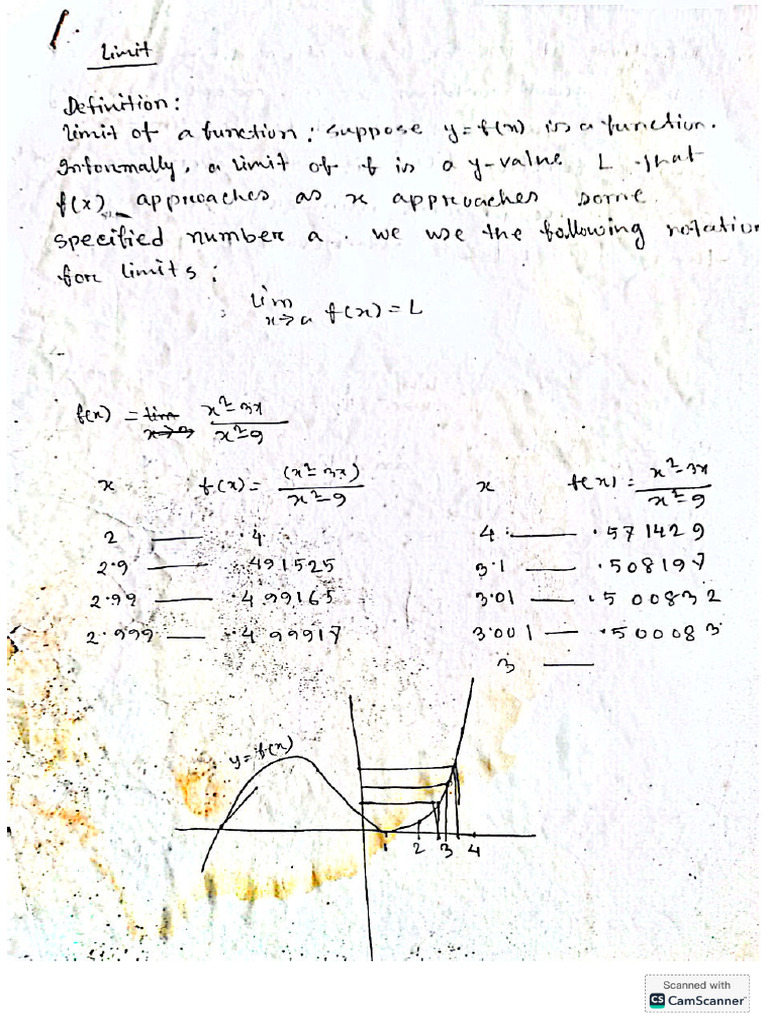 Limit
Definition:
Limit of a function: suppose y=f(x) is a function.
Informally, a limit of f is a y-value L that
f(x) approaches as x approaches some
specified number a. we use the following notation
for limits:
lim x→a f(x) = L
f(x) = lim x→3 x²-3x / x²-9
x f(x) = (x²-3x) / x²-9
2 — .4
2.9 — .491525
2.99 — .499165
2.999 — .499917
x f(x) = x²-3x / x²-9
4 — .571429
3.1 — .508197
3.01 — .500832
3.001 — .500083
3 —
y=f(x)
1 2 3 4
Scanned with
CS CamScanner